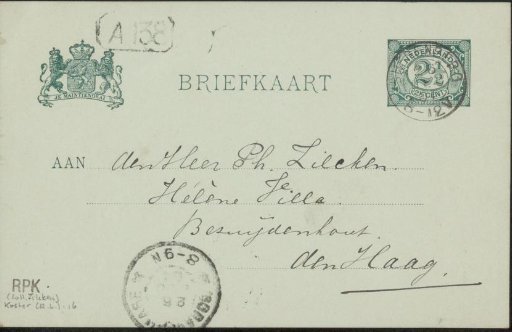 A 138
JE MAINTIENDRAI
BRIEFKAART
NEDERLAND
2½
CENT
8-12V
AAN den Heer Ph. Zilcken.
Hélène Villa
Bezuidenhout.
den Haag.
N6-8
RPK.
(coll. Zilcken)